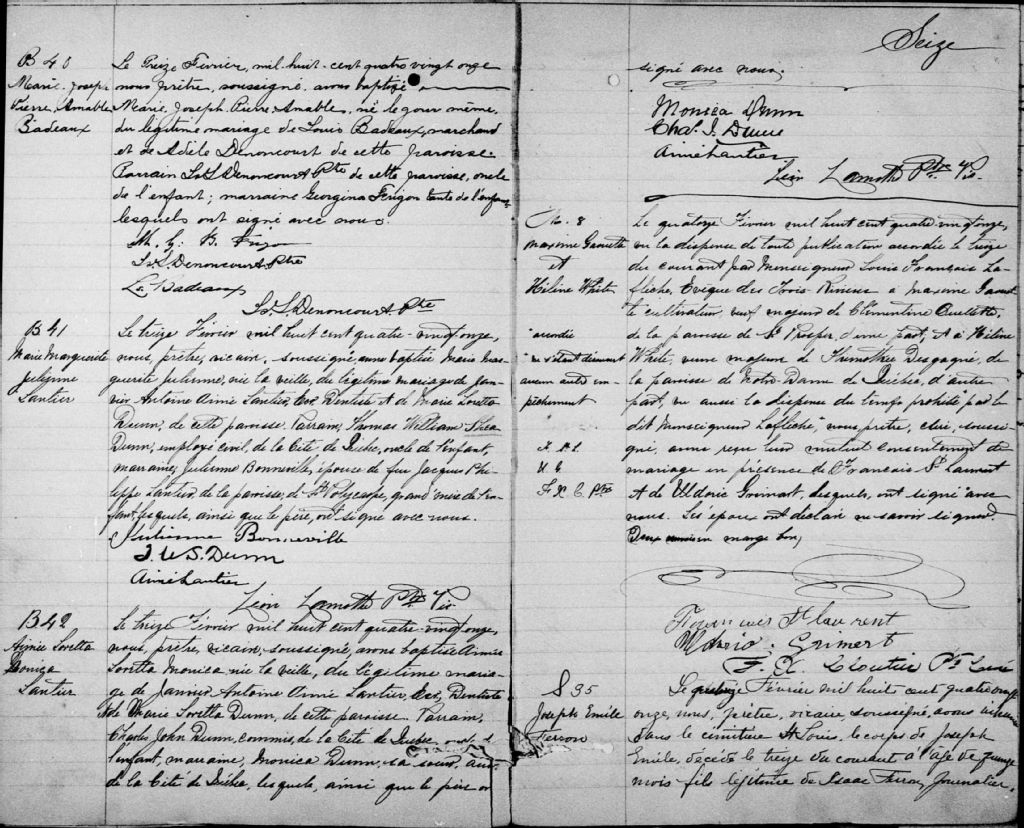 B 40
Marie Joseph
Pierre Amable
Badeaux
Le treize Février, mil huit-cent quatre vingt onze
nous prêtre, soussigné avons baptisé
Marie, Joseph Pierre Amable, né le jour même,
du légitime mariage de Louis Badeaux, marchand
et de Adèle Denoncourt de cette paroisse.
Parrain Denoncourt Ptre de cette paroisse, oncle
de l'enfant; marraine Georgina Frigon tante de l'enfant
lesquels ont signé avec nous.
M. G. B. Frigon
Denoncourt Ptre
Ls. Badeaux
Denoncourt Pte
B 41
Marie Marguerite
Julienne
Lantier
Le treize Février mil huit cent quatre-vingt onze,
nous, prêtre, vicaire, soussigné, avons baptisé Marie Mar-
guerite Julienne, née la veille, du légitime mariage de Jan-
vier Antoine Aimé Lantier, Ecr, Dentiste et de Marie Loretta
Dunn, de cette paroisse. Parrain, Thomas William Shea
Dunn, employé civil, de la Cité de Québec, oncle de l'enfant,
marraine, Julienne Bonneville, épouse de feu Jacques Phi-
lippe Lantier, de la paroisse, de St Polycarpe, grand'mère de l'en-
fant, lesquels, ainsi que le père, ont signé avec nous.
Julienne Bonneville
T. W. S. Dunn
Aimé Lantier
Léon Lamothe Ptre Vic
B 42
Aimée Loretta
Monica
Lantier
Le treize Février mil huit cent quatre-vingt onze,
nous, prêtre, vicaire, soussigné, avons baptisé Aimée
Loretta Monica née la veille, du légitime maria-
ge de Janvier Antoine Aimé Lantier, Ecr, Dentiste
et de Marie Loretta Dunn, de cette paroisse. Parrain,
Charles John Dunn, commis, de la Cité de Québec oncle de
l'enfant, marraine, Monica Dunn, sa soeur, aussi
de la Cité de Québec, lesquels, ainsi que le père ont
Seize
signé avec nous.
Monica Dunn
Chas. J. Dunn
Aimé Lantier
Léon Lamothe Ptre Vic.
M. 8
Maxime Gaouette
et
Hélène White
accordée
ne s'étant découvert
aucun autre em-
pêchement
F. X. C. Ptre
Le quatorze Février mil huit cent quatre-vingt onze,
vu la dispense de toute publication accordée le treize
du courant par Monseigneur Louis François La-
flèche, Evêque des Trois-Rivières à Maxime Gaouet-
te cultivateur veuf majeur de Clémentine Ouellette,
de la paroisse de St Prosper, d'une part, et à Hélène
White, veuve majeure de Thimothée Desgagné, de
la paroisse de Notre-Dame de Québec, d'autre
part, vu aussi la dispense du temps prohibé par le
dit Monseigneur Laflèche, nous prêtre, curé, soussi-
gné, avons reçu leur mutuel consentement de
mariage en présence de François St Laurent
et de Uldoric Grimart, lesquels, ont signé avec
nous. Les époux ont déclaré ne savoir signer.
Deux en marge bon,
St laurent
Grimert
F. X. Cloutier Ptre Curé
S 35
Joseph Emile
Ferron
Le quinze Février mil huit cent quatre vingt
onze, nous, prêtre, vicaire soussigné, avons inhumé
dans le cimetière St Louis, le corps de Joseph
Emile, décédé le treize du courant à l'âge de quinze
mois fils légitime de Isaac Ferron, Journalier,